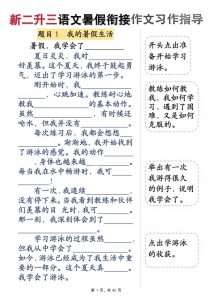 新二升三语文暑假衔接作文习作指导
题目1 我的暑假生活
暑假，我学会了
夏日炎炎，我对
好奇。这个夏天，我终于鼓起勇
气，迈出了学游泳的第一步。
刚开始时，我
，心跳加速。教练细心地
教我 的基本动作。
虽然 ，有时候还
呛水，但我并没有
每次练习后，我都会想想
。渐渐地，我开始找
到了游泳的感觉。我的动作
，身体也越来越
每当我在水中畅游时，我
！
有一次，我连续
没有停下来。当我看到教练和伙
伴们羡慕的目光时，我
。那一刻，我深刻体会到了
学习游泳的过程虽然
但我从中学会了
如今，游泳已经成为了我生活中重
要的一部分。这个夏天真
，我学会了游泳。
开头点出准
备开始学习
游泳。
教练如何教
我，我如何学
习，遇到了困
难，又是如何
克服的。
举出有一次
我游得很久
的例子，说明
我学会了。
点出学游泳
的收获。
第 1 页，共 42 页